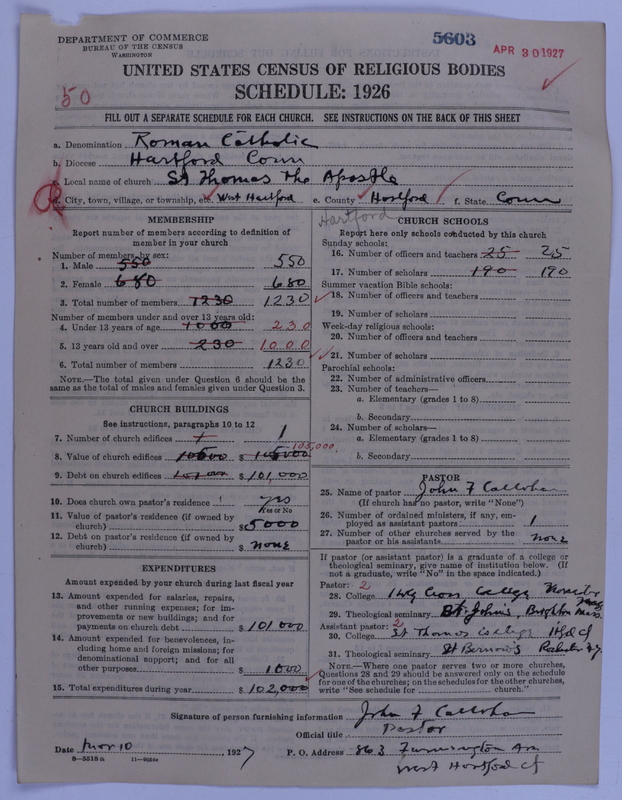 DEPARTMENT OF COMMERCE
BUREAU OF THE CENSUS
WASHINGTON
5603
APR 30 1927
UNITED STATES CENSUS OF RELIGIOUS BODIES
SCHEDULE: 1926
50
FILL OUT A SEPARATE SCHEDULE FOR EACH CHURCH. SEE INSTRUCTIONS ON THE BACK OF THIS SHEET
a. Denomination Roman Catholic
b. Diocese Hartford Conn
c. Local name of church St Thomas The Apostle
d. City, town, village, or township, etc. West Hartford e. County Hartford f. State Conn
Hartford
MEMBERSHIP
Report number of members according to definition of member in your church
Number of members by sex:
1. Male 550 550
2. Female 680 680
3. Total number of members 1230 1230
Number of members under and over 13 years old:
4. Under 13 years of age 1000 230
5. 13 years old and over 230 1000
6. Total number of members 1230
NOTE.—The total given under Question 6 should be the same as the total of males and females given under Question 3.
CHURCH BUILDINGS
See instructions, paragraphs 10 to 12
7. Number of church edifices 1 1
105,000
8. Value of church edifices $
9. Debt on church edifices 101,000 $ 101,000
10. Does church own pastor's residence? yes
Yes or No
11. Value of pastor's residence (if owned by church) $ 5000
12. Debt on pastor's residence (if owned by church) $ none
EXPENDITURES
Amount expended by your church during last fiscal year
13. Amount expended for salaries, repairs, and other running expenses; for improvements or new buildings; and for payments on church debt $ 101,000
14. Amount expended for benevolences, including home and foreign missions; for denominational support; and for all other purposes $ 1000
15. Total expenditures during year $ 102,000
CHURCH SCHOOLS
Report here only schools conducted by this church
Sunday schools:
16. Number of officers and teachers 25 25
17. Number of scholars 190 190
Summer vacation Bible schools:
18. Number of officers and teachers
19. Number of scholars
Week-day religious schools:
20. Number of officers and teachers
21. Number of scholars
Parochial schools:
22. Number of administrative officers
23. Number of teachers—
a. Elementary (grades 1 to 8)
b. Secondary
24. Number of scholars—
a. Elementary (grades 1 to 8)
b. Secondary
PASTOR
25. Name of pastor John F Callahan
(If church has no pastor, write "None")
26. Number of ordained ministers, if any, employed as assistant pastors 1
27. Number of other churches served by the pastor or his assistants none
If pastor (or assistant pastor) is a graduate of a college or theological seminary, give name of institution below. (If not a graduate, write "No" in the space indicated.)
Pastor: 2
28. College Holy Cross College Worcester Mass
29. Theological seminary St John's, Brighton Mass.
Assistant pastor: 2
30. College St Thomas College Htfd Ct
31. Theological seminary St Bernards Rochester N.Y.
NOTE.—Where one pastor serves two or more churches, Questions 28 and 29 should be answered only on the schedule for one of the churches; on the schedules for the other churches, write "See schedule for church."
Signature of person furnishing information John F Callahan
Official title Pastor
Date Mar 10 1927 P. O. Address 863 Farmington Ave
West Hartford Ct
8—5518a